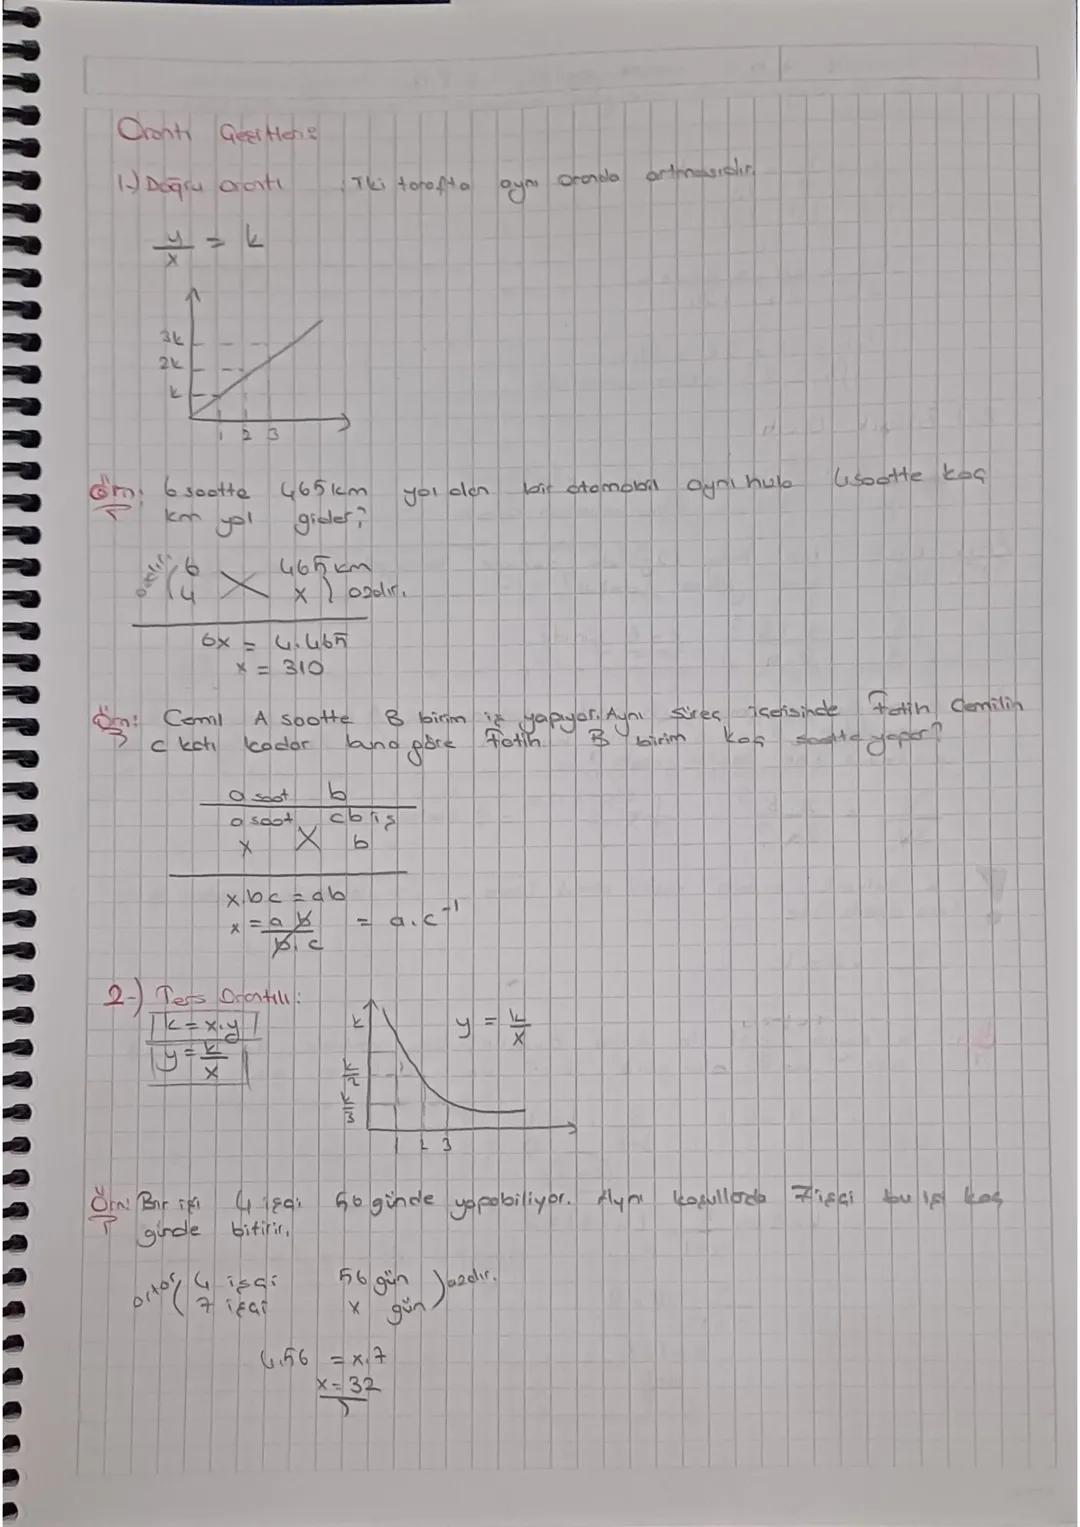 Orantı Çeşitleri:
1-) Doğru orantı : İki tarafta aynı oranda artmasıdır.
y/x = k
3k
2k
k
1 2 3
Örn: 6 saatte 465 km yol alan bir otomobil aynı hızla 4 saatte kaç
km yol gider?
6 465 km
4 x azalır.
6x = 4.465
x = 310
Örn: Cemil A saatte B birim iş yapıyor. Aynı süreç içerisinde Fatih Cemilin
c katı kadar buna göre Fatih B birim kaç saatte yapar?
a saat b
a saat cb iş
x b
x.b.c = ab
x = a b / b. c = a.c⁻¹
2-) Ters Orantılı:
k = x.y
y = k/x
y = k/x
k
k/2
k/3
1 2 3
Örn: Bir işi 4 işçi 56 günde yapabiliyor. Aynı koşullarda 7 işçi bu işi kaç
günde bitirir.
artar 4 işçi 56 gün azalır.
7 işçi x gün
4.56 = x.7
x = 32